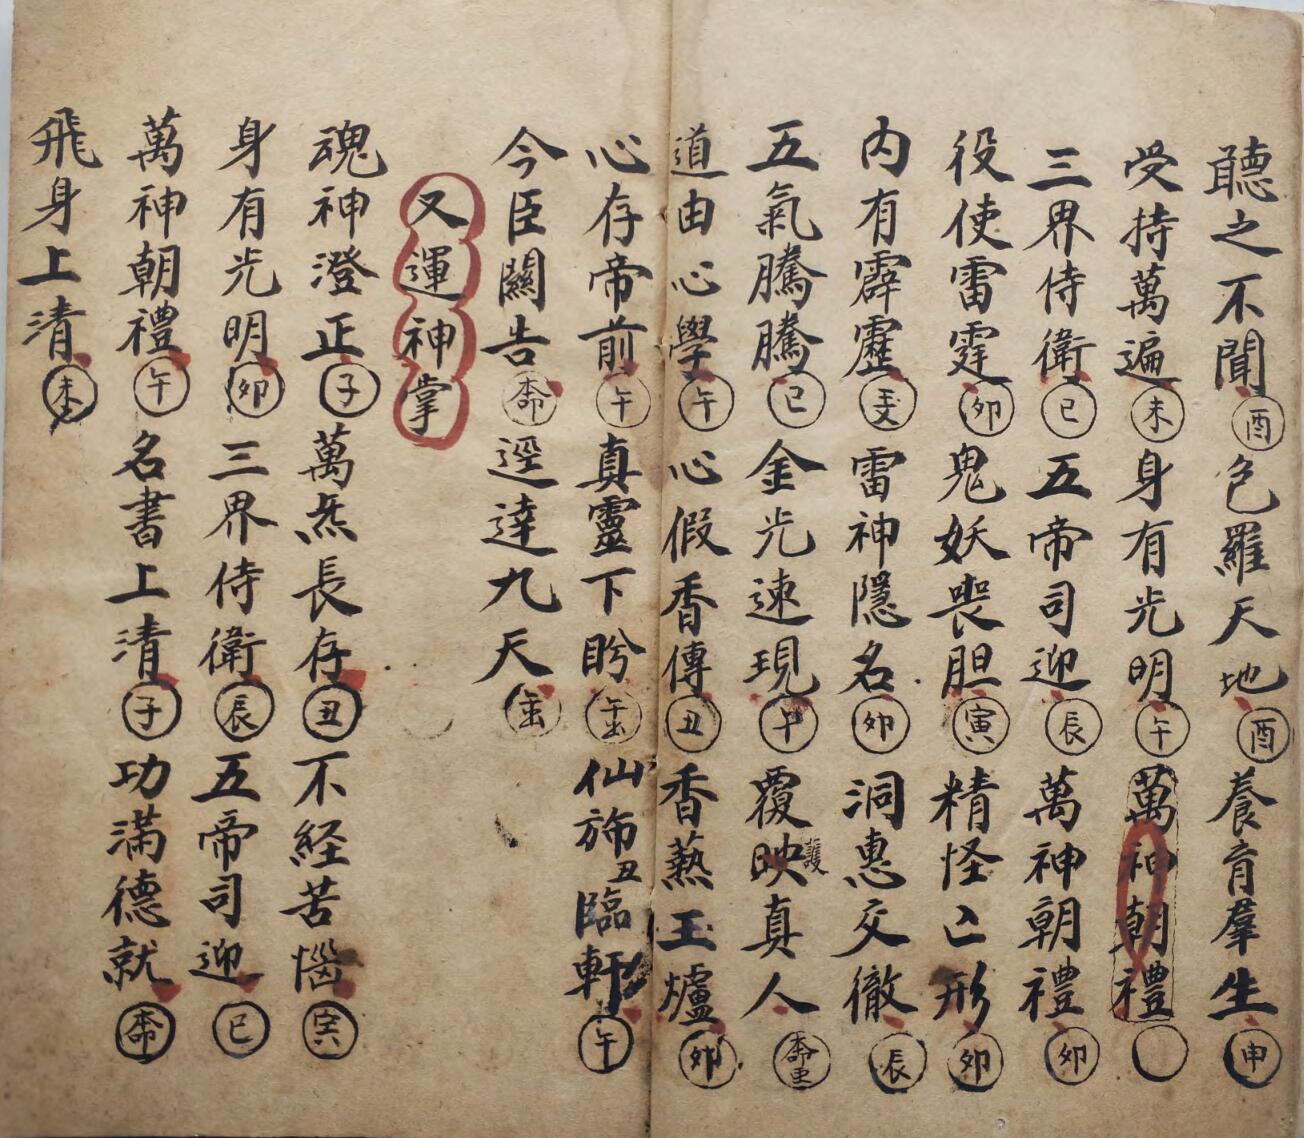 聽之不聞酉色羅天地酉養育羣生申
受持萬遍未身有光明午萬神朝禮
三界侍衛巳五帝司迎辰萬神朝禮卯
役使雷霆卯鬼妖喪胆寅精怪亡形卯
内有霹靂雷神隱名卯洞惠交徹辰
五氣騰騰巳金光速現午覆映護真人
道由心學午心假香傳丑香爇玉爐卯
心存帝前午真靈下盼仙斾丑臨軒午
今臣關告逕達九天
又運神掌
魂神澄正子萬炁長存丑不経苦惱寅
身有光明卯三界侍衛辰五帝司迎巳
萬神朝禮午名書上清子功滿德就
飛身上清未